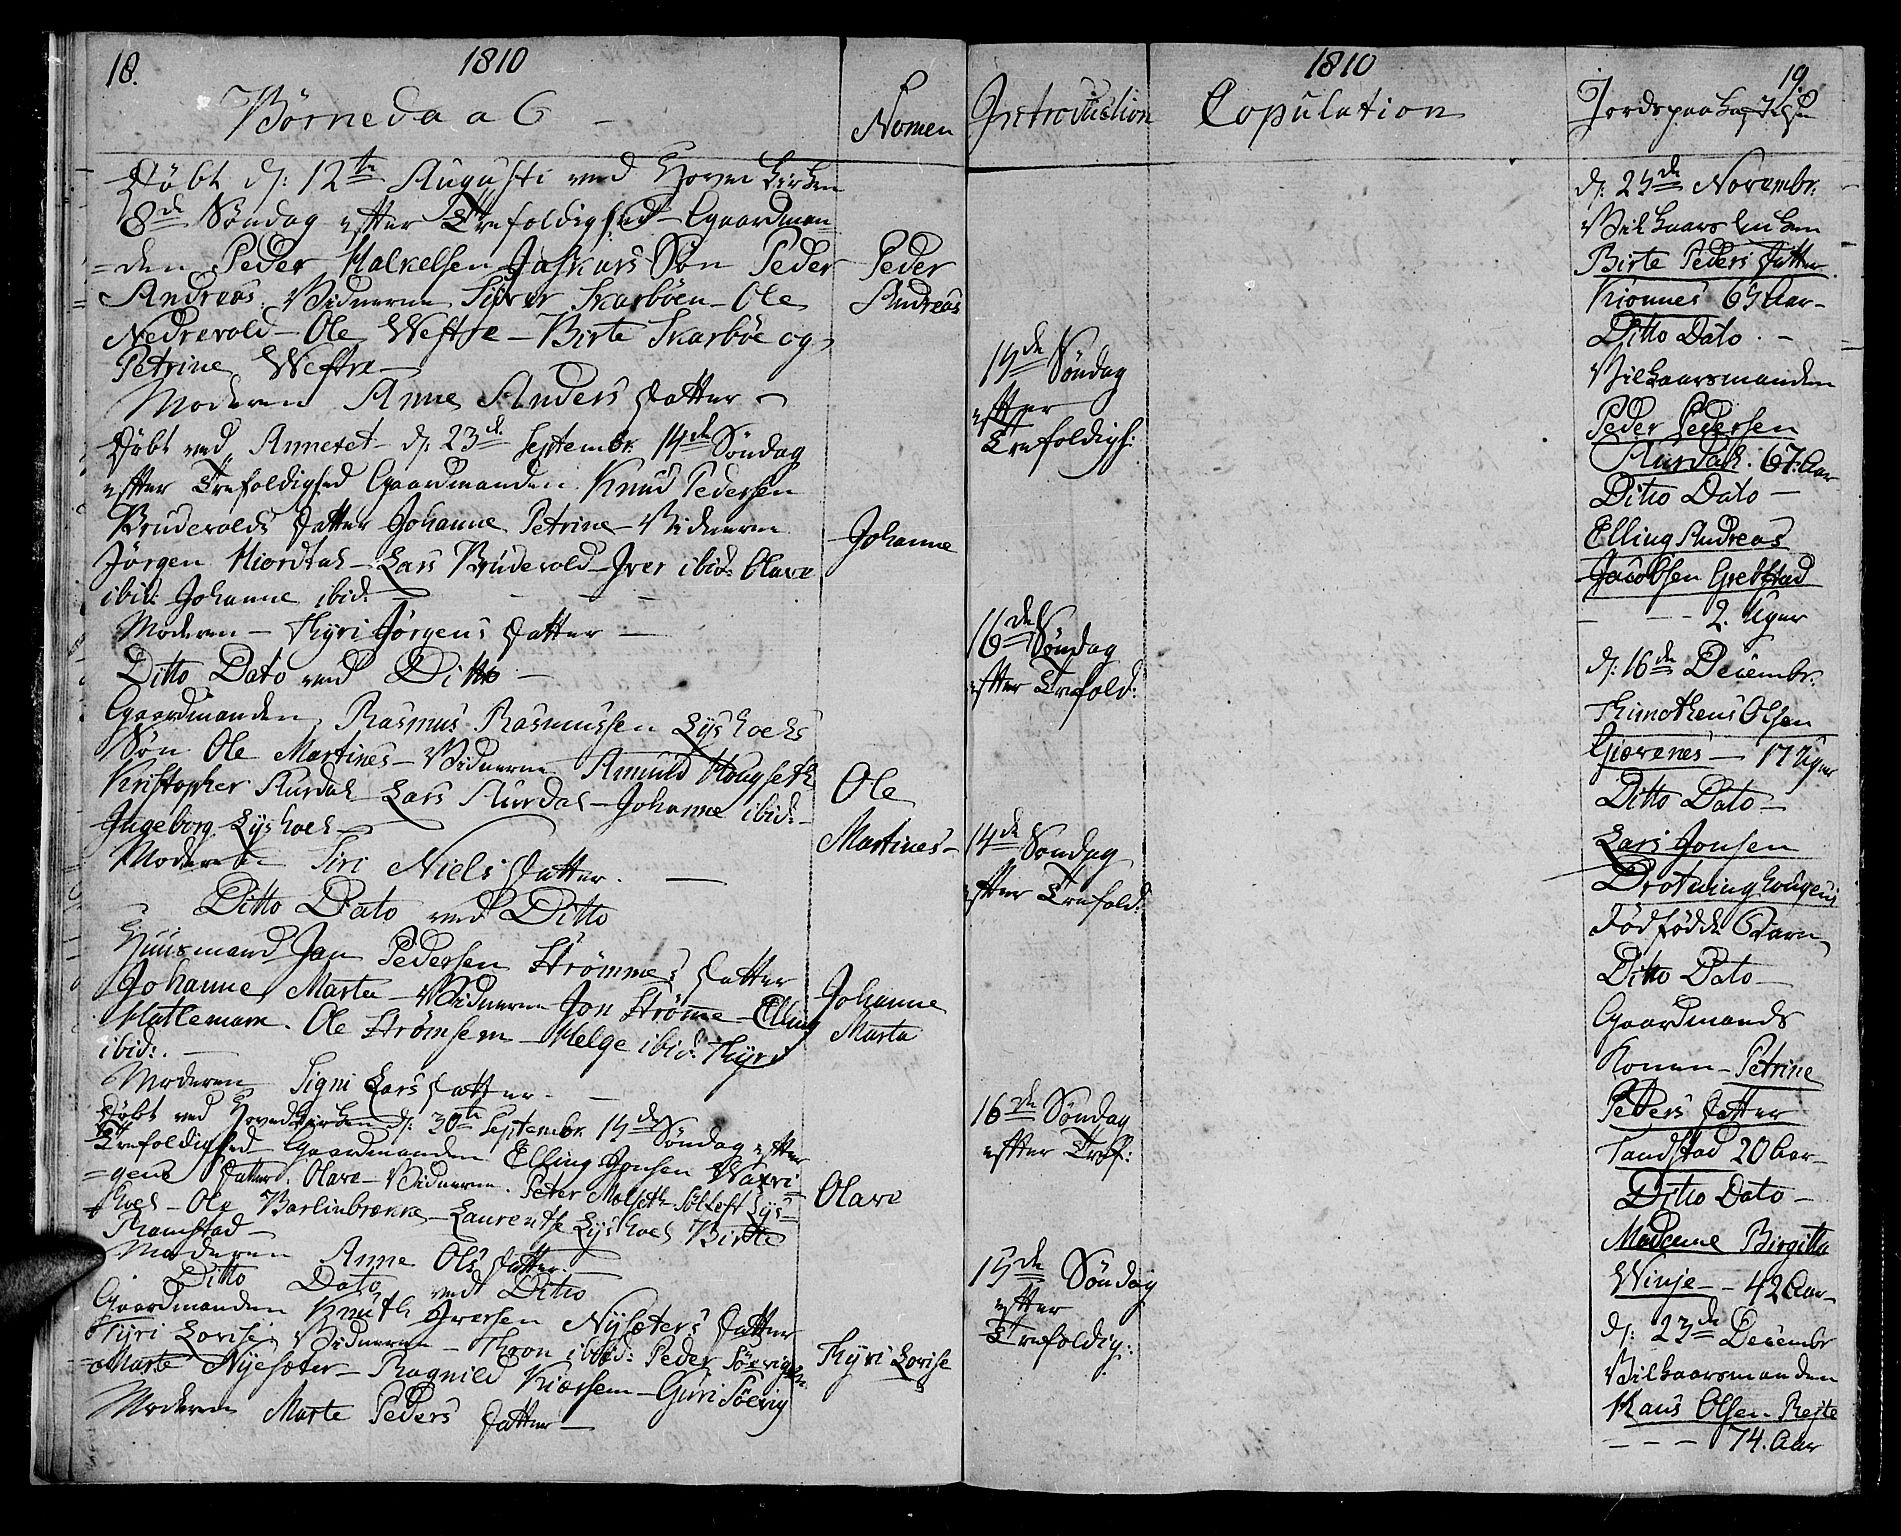 18.
1810
Børnedaab
Nomen
Døbt d: 12te Augusti ved Hovedkirken
8de Søndag efter Trefoldighed Gaardman=
=den Peder Halkelsen Jaskars Søn Peder
Andreas. Vidnerne Siver Skarbøen - Ole
Nedrevold - Ole Weftre - Birte Skarbøe og
Petrine Weftre -
Moderen Anne Anders Datter -
Peder
Andreas
Døbt ved Annexet d: 23de Septembr. 14de Søndag
efter Trefoldighed Gaardmanden Knud Pedersen
Brudevolds Datter Johanne Petrine - Vidnerne
Jørgen Hiordtal - Lars Brudevold - Iver ibid: Olave
ibid: Johanne ibid:
Moderen - Kyri Jørgens Datter -
Johanne
Ditto Dato ved Ditto -
Gaardmanden Rasmus Rasmussen Lyshoels
Søn Ole Martines - Vidnerne Amuld Hougseth
Kristopher Aurdal - Lars Aurdal - Johanne ibid: -
Ingeborg Lyshoel -
Moderen Siri Niels Datter. -
Ole
Martines -
Ditto Dato ved Ditto
Huusmand Jan Pedersen Strømmes Datter
Johanne Marta - Vidnerne Jon Strømme - Elling
Hatlemark. Ole Strømsem - Helge ibid: Kyri
ibid: -
Moderen Signi Lars Datter -
Johanne
Marta
Døbt ved Hovedkirken d: 30te Septembr. 15de Søndag efter
Trefoldighed Gaardmanden Elling Jonsen Waxvi=
=gens Datter Olave - Vidnerne Peter Molseth Søltoft Lys=
hoel - Ole Barlinbrække - Laurentse Lyshoel Birthe
Ramstad -
Moderen Anne Ols Datter -
Olave
Ditto Dato ved Ditto
Gaardmanden Knuth Iversen Nysæters Datter
Kyri Lovise, Vidnerne - Thoon ibid: Peder Søevigen
Marte Nyesæter - Ragnild Kiersem - Guri Søevig
Moderen Marte Peders Datter -
Kyri Lovise
Introduction
15de Søndag
efter
Trefoldigh:
16de Søndag
efter Trefold:
14de Søndag
efter Trefold:
16de Søndag
efter Tref:
15de Søndag
efter
Trefoldig:
1810
Copulation
19.
Jordspaakastelse
d: 25de Novembr.
Vilkaars Enken
Birte Peders Datter
Kionnes 65 Aar -
Ditto Dato. -
Vilkaarsmanden
Peder Pedersen
Aurdal. 67: Aar
Ditto Dato -
Elling Andreas
Jacobsen Grebstad
- - - 2. Uger
d: 16de Decembr.
Thimotheus Olsen
Giærenes - 17 Uger
Ditto Dato -
Lars Jonsen
Drotninghougens
Dødfødde Barn
Ditto Dato -
Gaardmands
Konen - Petrine
Peders Datter
Tandstad 20 Aar -
Ditto Dato -
Madame Birgitta
Winje - 42 Aar -
d: 23de Decembr
Vilkaarsmanden
Klaus Olsen Reite
- - - 74. Aar